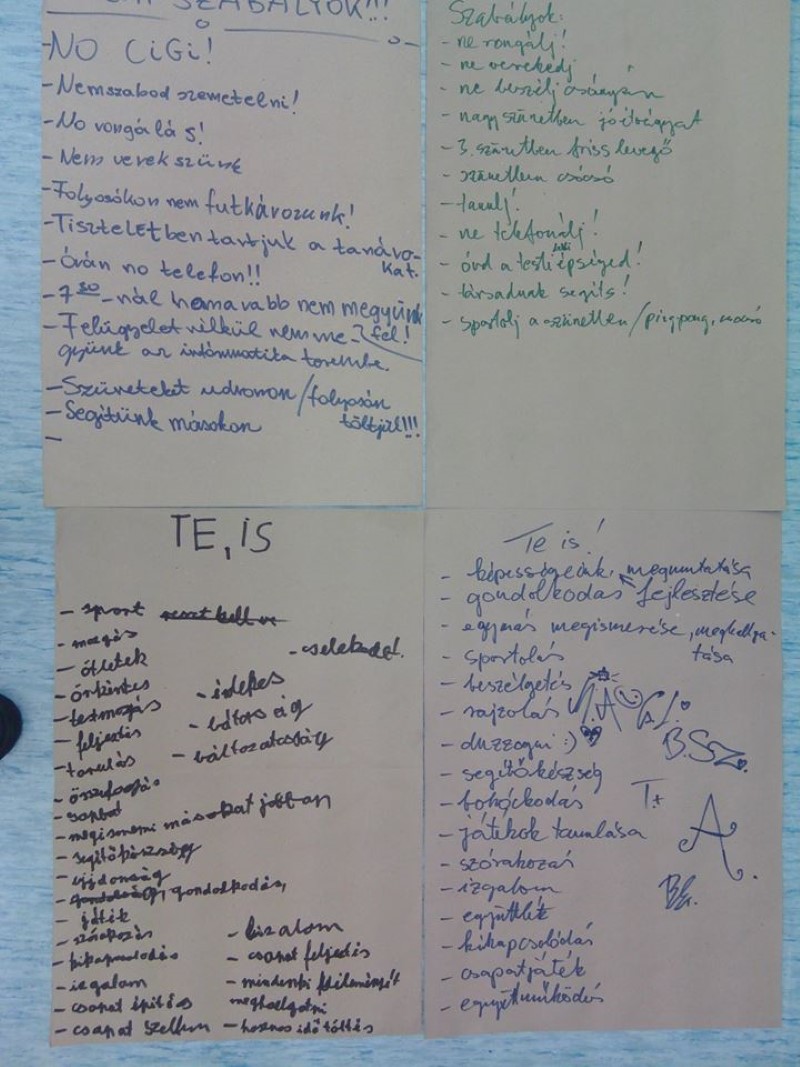 SZABÁLYOK!!!
-NO CIGI!
-Nemszabod szemetelni!
-No rongálás!
-Nem verekszünk
-Folyosókon nem futkározunk!
-Tiszteletben tartjuk a tanáro-
kat.
-Órán no telefon!!
-7 30-nál hamarabb nem megyünk
fel!
-Felügyelet nélkül nem me-
gyünk az informatika terembe.
-Szüneteket udvaron/folyosón
töltjük!!!
-Segítünk másokon
-
Szabályok:
- ne rongálj!
- ne verekedj
- ne beszélj csúnyán
- nagyszünetben jó étvágyat
- 3. szünetben friss levegő
- szünetben csocsó
- tanulj!
- ne telefonálj!
- óvd a testi lelki épséged!
- társadnak segíts!
- sportolj a szünetben/pingpong, csocsó
TE, IS
- sport
- mozgás
- ötletek
- önkéntes
- testmozgás
- fejlesztés
- tanulás
- összefogás
- csapat
- megismerni másokat jobban
- segítőkészség
- újdonság
- gondolkodás,
- játék
- szórakozás
- kikapcsolódás
- izgalom
- csapat építés
- csapat szellem
- cselekedet.
- érdekes
- bátorság
- változatosság
- bizalom
- csapat fejlesztés
- mindenki véleményét
meghallgatni
- hasznos idő töltés
Te is!
- képességeink megmutatása
- gondolkodás fejlesztése
- egymás megismerése, meghallga-
tása
- sportolás
- beszélgetés
- rajzolás
- duzzogni :)
- segítőkészség
- bohóckodás
- játékok tanulása
- szórakozás
- izgalom
- együttlét
- kikapcsolódás
- csapatjáték
- együttműködés
B.Sz.
T.
A.